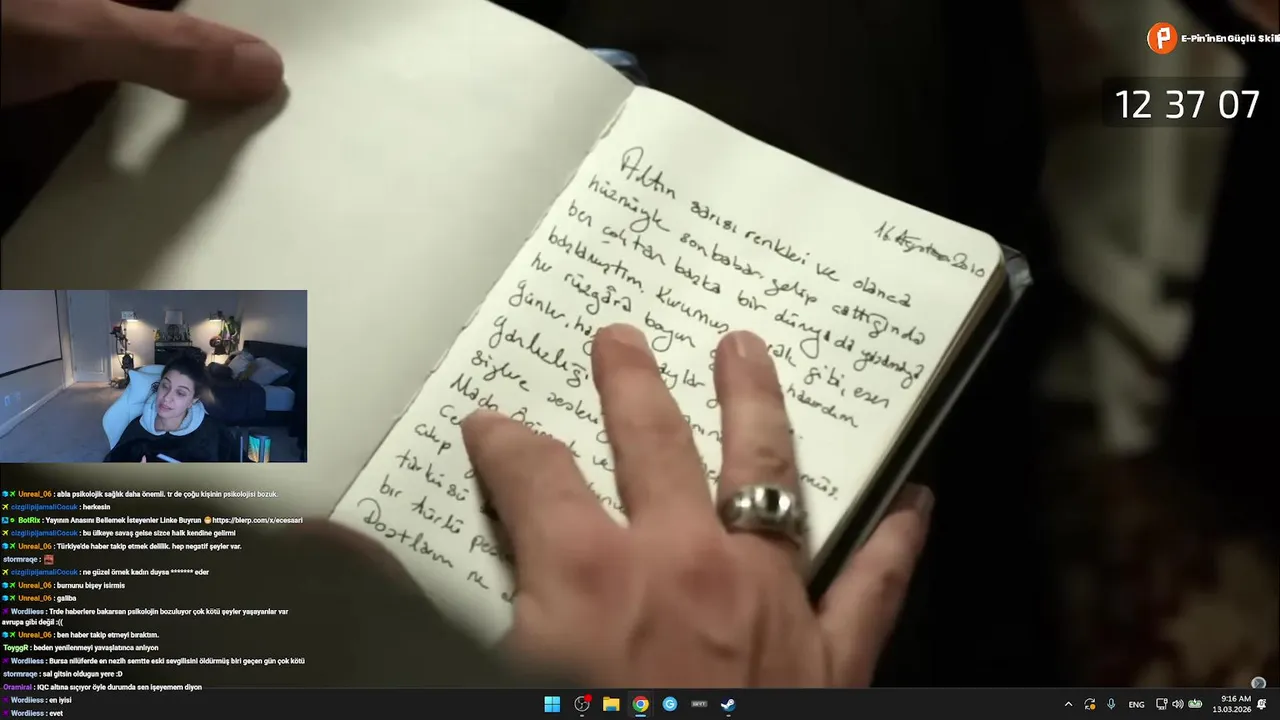 E-Pin'in En Güçlü Skil
12 37 07
16 Ağustos 2010
Altın sarısı renkleri ve olanca
hüznüyle sonbahar gelip çattığında
ben çoktan başka bir dünyada yaşamaya
başlamıştım. Kurumuş gibi, esen
her rüzgâra boyun
günler,
sizlere
bir türlü
Dostların ne
Unreal_06 : abla psikolojik sağlık daha önemli. tr de çoğu kişinin psikolojisi bozuk.
cizgilipijamaliCocuk : herkesin
BotRix : Yayının Anasını Bellemek İsteyenler Linke Buyrun https://bierp.com/x/ecesaari
cizgilipijamaliCocuk : bu ülkeye savaş gelse sizce halk kendine gelirmi
Unreal_06 : Türkiye'de haber takip etmek delilik. hep negatif şeyler var.
stormraqe :
cizgilipijamaliCocuk : ne güzel örnek kadın duysa ******* eder
Unreal_06 : burnunu bişey isirmis
Unreal_06 : galiba
Wordliess : Trde haberlere bakarsan psikolojin bozuluyor çok kötü şeyler yaşayanlar var
avrupa gibi değil :((
Unreal_06 : ben haber takip etmeyi bıraktım.
ToyggR : beden yenilenmeyi yavaşlatınca anlıyon
Wordliess : Bursa nilüferde en nezih semtte eski sevgilisini öldürmüş biri geçen gün çok kötü
stormraqe : sal gitsin oldugun yere :D
Oramiral : IQC altına sıçıyor öyle durumda sen işeyemem diyon
Wordliess : en iyisi
Wordliess : evet
ENG
9:16 AM
13.03.2026